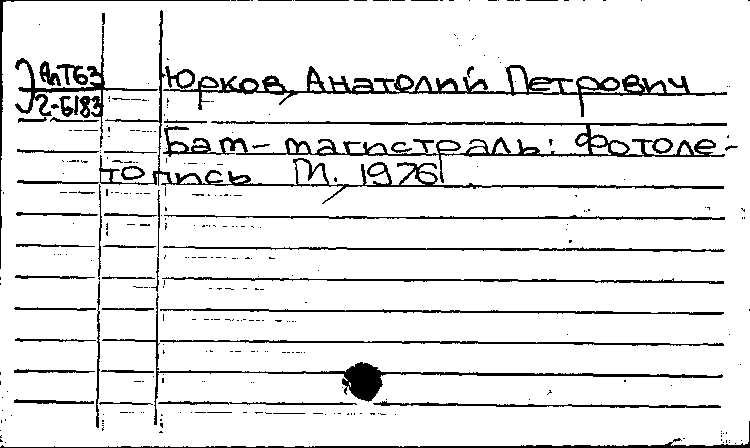 АпТ63
2-5183
Юрков, Анатолий Петрович
Бам-магистраль: Фотоле-
топись М., 1976